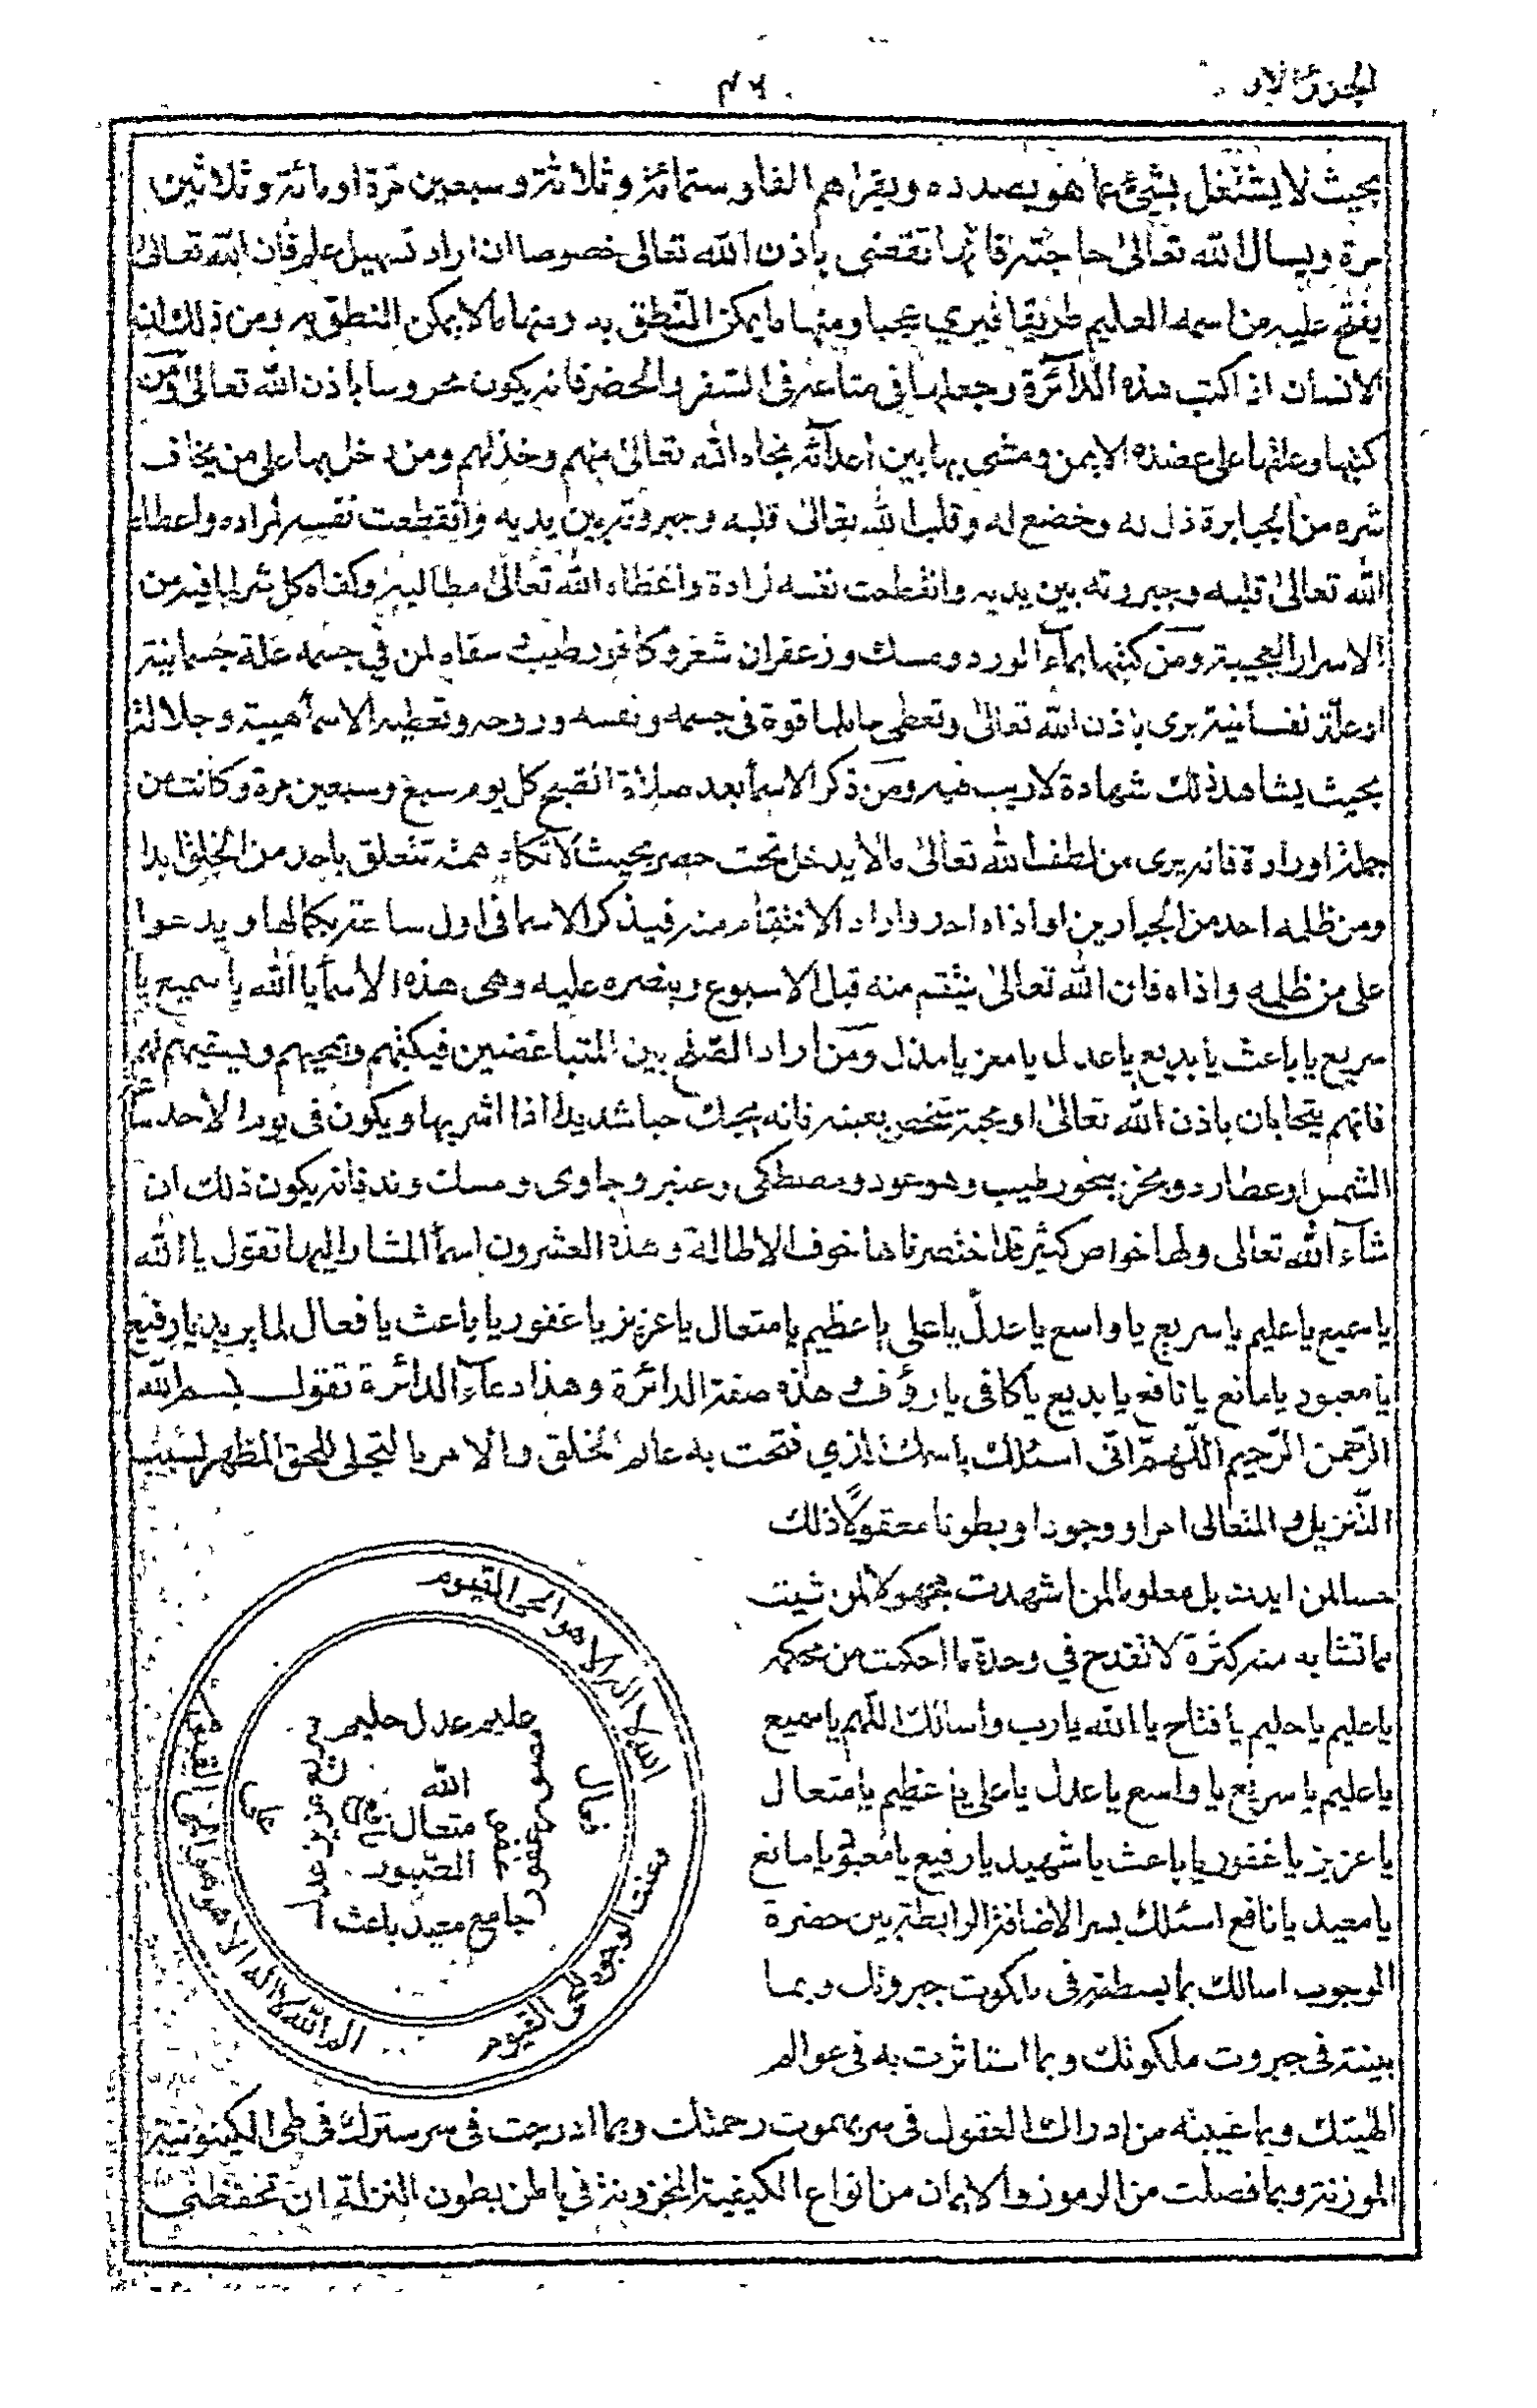 الجزء الأول
٤٢
بحيث لا يشتغل بشئ عما هو بصدده ويقراهم الفا وستمائة وثلاثة وسبعين مرة او مائة وثلاثين
مرة ويسال الله تعالى حاجته فانها تقضى باذن الله تعالى خصوصا ان اراد تسهيل علم فان الله تعالى
يفتح عليه من اسمه العليم طريقا فيري عجبا ومنها ما يمكن النطق به ومنها مالا يمكن النطق به ومن ذلك انه
الانسان اذ اكتب هذه الدآئرة وجعلها في متاعه في السفر والحضر فانه يكون محروسا باذن الله تعالى ومن
كتبها وعلقها على عضده الايمن ومشى بها بين اعدآئه نجاه الله تعالى منهم وخذلهم ومن دخل بها على من يخاف
شره من الجبابرة ذل له وخضع له وقلب الله تعالى قلبه وجبروته بين يديه وانقطعت نفسه لمراده واعطاه
الله تعالى قلبه وجبروته بين يديه وانقطعت نفسه لرادة واعطاه الله تعالى مطالبه وكفاه كل شر لما فيه من
الاسرار العجيبة ومن كتبها بمآء الورد ومسك وزعفران شعر وكافور طيب سقاه لمن في جسمه علة جسمانية
اوعلة نفسانية برى باذن الله تعالى وتعطى حاملها قوة في جسمه ونفسه وروحه وتعطيه الاسمأ هيبة وجلالة
بحيث يشاهد ذلك شهادة لاريب فيه ومن ذكر الاسمأ بعد صلاة الصبح كل يوم سبع وسبعين مرة وكانت من
جملة اوراده فانه يرى من لطف الله تعالى مالا يدخل تحت حصر بحيث لا تكاد همته تتعلق باحد من الخلق ابدا
ومن ظلمه احد من الجبارين او اذاه احد واراد الانتقام منه فيذكر الاسما في اول ساعة بكمالها ويدعوا
على من ظلمه واذاه فان الله تعالى ينتقم منه قبل الاسبوع وينصره عليه وهى هذه الاسمأ يا الله يا سميع يا
سريع يا باعث يا بديع يا عدل يا معز يا مذل ومن اراد الصلح بين المتباغضين فيكتبهم ويمحيهم ويسقيهم لهم
فانهم يتحابان باذن الله تعالى او محبة شخص بعينه فانه يحبك حبا شديدا اذا اشربها ويكون في يوم الاحد ساعة
الشمس او عطارد ويبخر ببخور طيب وهو عود ومصطكى وعنبر وجاوى ومسك وند فانه يكون ذلك ان
شآء الله تعالى ولها خواص كثيرة اختصرناها خوف الاطالة وهذه العشرون اسمأ المشار اليها تقول يا الله
يا سميع يا عليم يا سريع يا واسع يا عدل يا على يا عظيم يا متعال يا عزيز يا غفور يا باعث يا فعال لما يريد يا رفيع
يا معبود يا مانع يا نافع يا بديع يا كافى يا رؤف وهذه صفة الدائرة وهذا دعآء الدائرة تقول بسم الله
الرحمن الرحيم اللهم انى اسئلك باسمك الذي فتحت به عالم الخلق والامر بالتجلى للحق المظهر لسبب
التنزيل والمتعالى امرا ووجودا وبطونا معقولا ذلك
حسا لمن ايدت بل معلوما لمن اشهدت مجهولا لمن ثبت
بما تشابه منه كثرة لا تقدح في وحدة ما احكمت من محكمه
يا عليم يا حليم يا فتاح يا الله يا رب واسالك اللهم يا سميع
يا عليم يا سريع يا واسع يا عدل يا على يا عظيم يا متعال
يا عزيز يا غفور يا باعث يا شهيد يا رفيع يا معبود يا مانع
يا معيد يا نافع اسئلك بسر الاضافة الرابطة بين حضرة
الوجوب اسالك بما بسطته في ملكوت جبروتك وبما
بينته في جبروت ملكوتك وبما استاثرت به في عوالم
الهيتك وبما غيبته من ادراك العقول في سر بهموت رحمتك وبما ادرجت في سر سترك في طى الكينونية
الموزنة وبما فصلت من الرموز والايمان من انواع الكيفية المخزونة في بالمن بطون المنزلة ان تحفظنى
الم الله لا اله الا هو الحى القيوم
الله لا اله الا هو الحى القيوم
وعنت الوجوه للحى القيوم
فعال
عليم عدل حليم
الله
متعال
الصبور
جامع معيد باعث
غفور